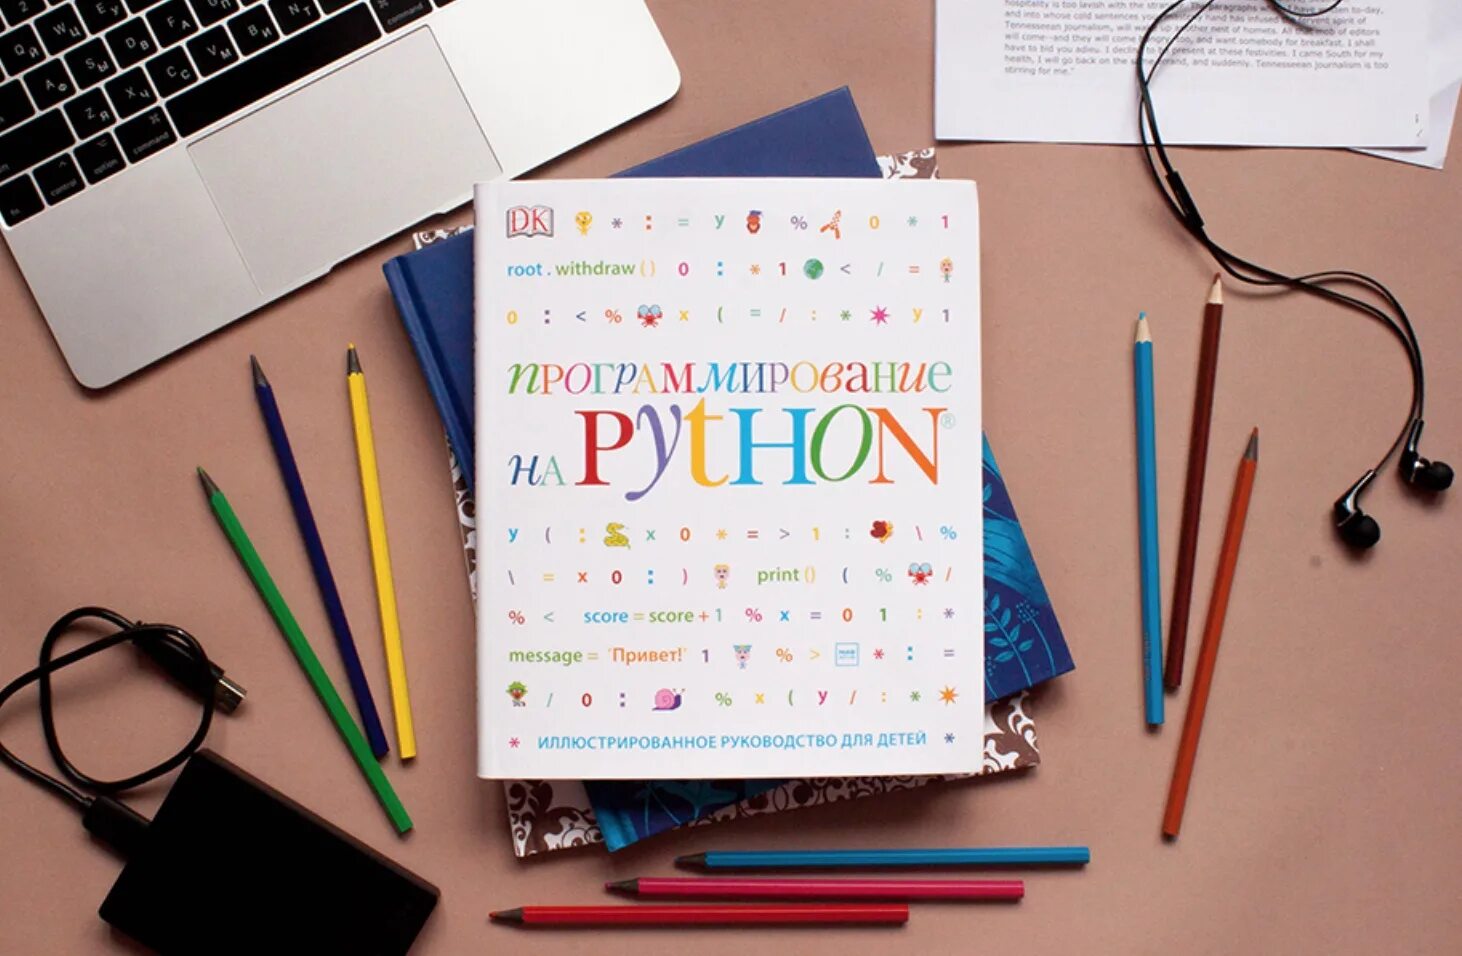 hospitality is too lavish with the
The paragraphs
have written to-day,
and into whose cold sentences your masterly hand has infused the fervent spirit of
Tennesseean journalism, will wake up another nest of hornets. All that mob of editors
will come--and they will come hungry, too, and want somebody for breakfast. I shall
have to bid you adieu. I decline to be present at these festivities. I came South for my
health, I will go back on the same errand, and suddenly. Tennesseean journalism is too
stirring for me."
command
option
control
fn
command
DK * : = y % 0 * 1
root . withdraw ( ) 0 : * 1 < / =
0 : < % x ( = / : * y 1
ПРОГРАММИРОВАНИЕ
НА PYTHON®
y ( : x 0 * = > 1 : \ %
\ = x 0 : ) print () ( % /
% < score = score + 1 % x = 0 1 : *
message = 'Привет!' 1 % > * : =
/ 0 : % x ( y / : *
* ИЛЛЮСТРИРОВАННОЕ РУКОВОДСТВО ДЛЯ ДЕТЕЙ *